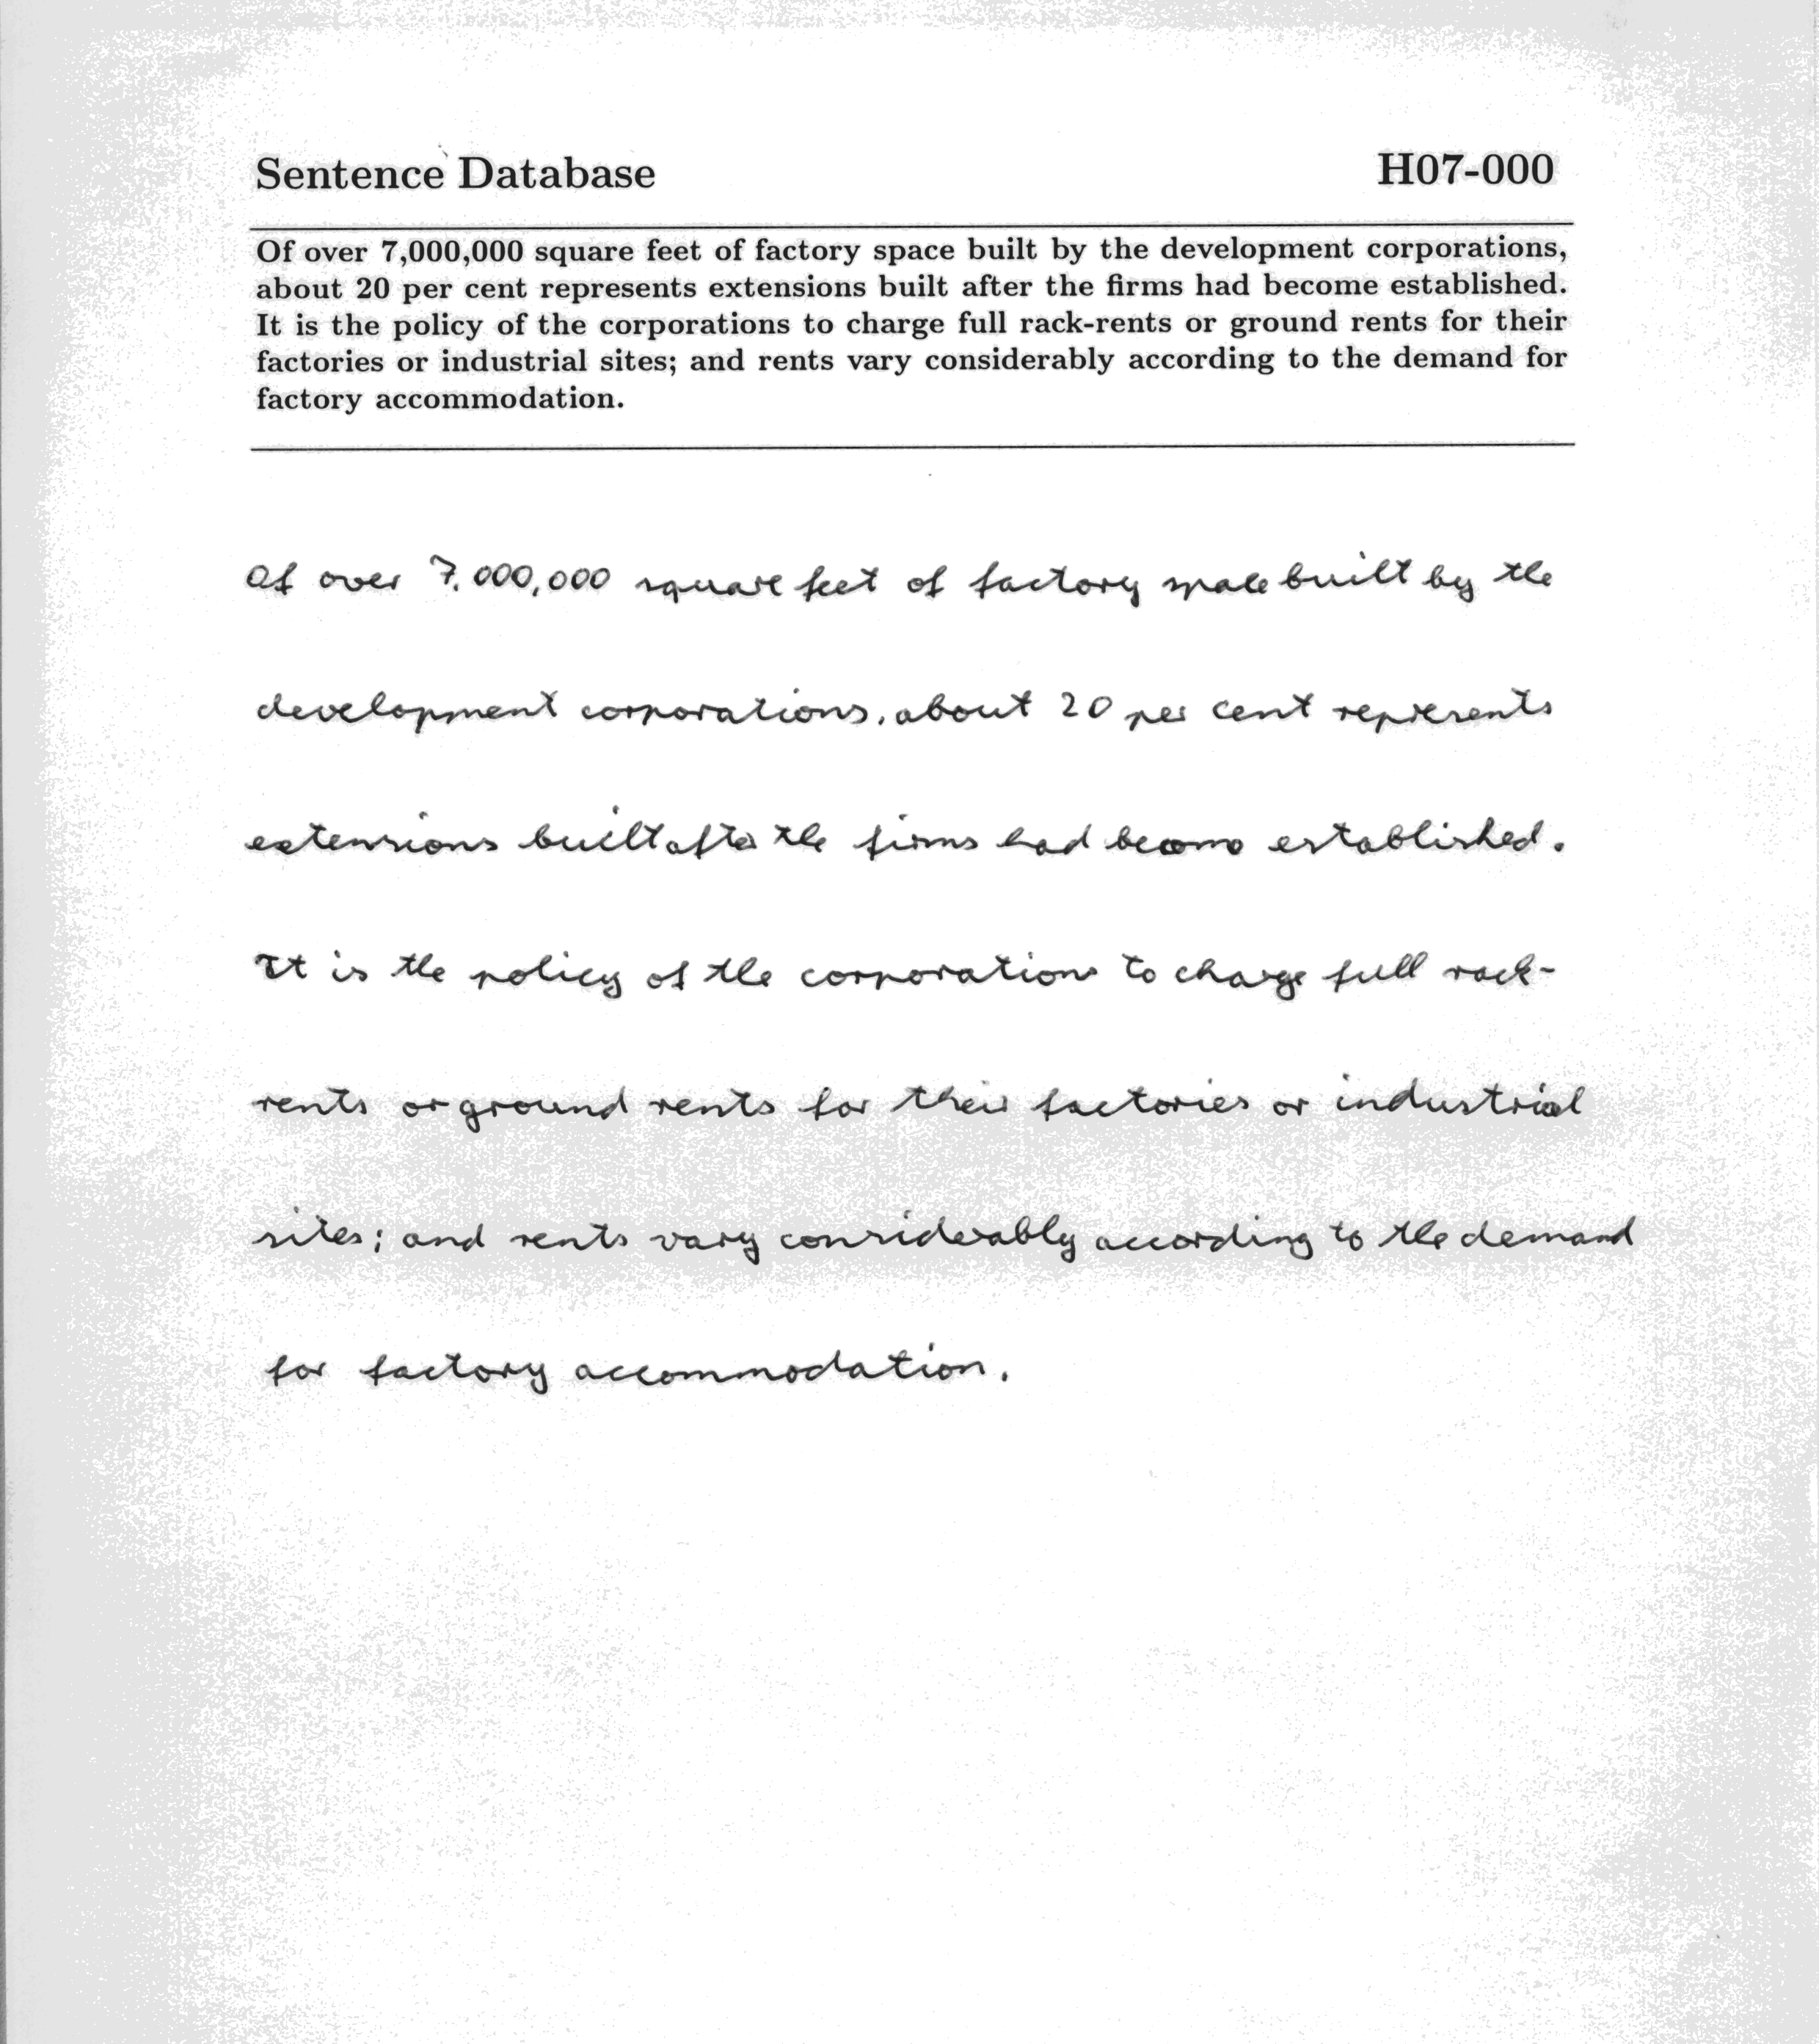 Sentence Database H07-000
Of over 7,000,000 square feet of factory space built by the development corporations,
about 20 per cent represents extensions built after the firms had become established.
It is the policy of the corporations to charge full rack-rents or ground rents for their
factories or industrial sites; and rents vary considerably according to the demand for
factory accommodation.
Of over 7,000,000 square feet of factory space built by the
development corporations, about 20 per cent represents
extensions built after the firms had become established.
It is the policy of the corporations to charge full rack-
rents or ground rents for their factories or industrial
sites; and rents vary considerably according to the demand
for factory accommodation.